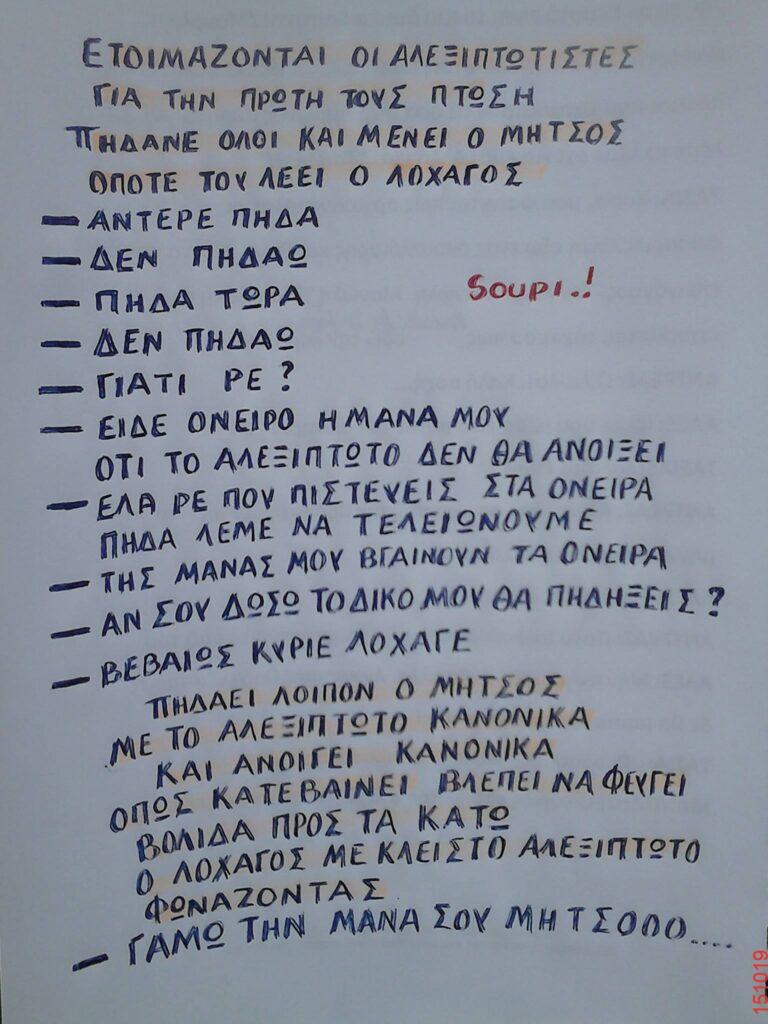 ΕΤΟΙΜΑΖΟΝΤΑΙ ΟΙ ΑΛΕΞΙΠΤΩΤΙΣΤΕΣ
ΓΙΑ ΤΗΝ ΠΡΩΤΗ ΤΟΥΣ ΠΤΩΣΗ
ΠΗΔΑΝΕ ΟΛΟΙ ΚΑΙ ΜΕΝΕΙ Ο ΜΗΤΣΟΣ
ΟΠΟΤΕ ΤΟΥ ΛΕΕΙ Ο ΛΟΧΑΓΟΣ
— ΑΝΤΕΡΕ ΠΗΔΑ
— ΔΕΝ ΠΗΔΑΩ
SOUPI.!
— ΠΗΔΑ ΤΩΡΑ
— ΔΕΝ ΠΗΔΑΩ
— ΓΙΑΤΙ ΡΕ?
— ΕΙΔΕ ΟΝΕΙΡΟ Η ΜΑΝΑ ΜΟΥ
ΟΤΙ ΤΟ ΑΛΕΞΙΠΤΩΤΟ ΔΕΝ ΘΑ ΑΝΟΙΞΕΙ
— ΕΛΑ ΡΕ ΠΟΥ ΠΙΣΤΕΥΕΙΣ ΣΤΑ ΟΝΕΙΡΑ
ΠΗΔΑ ΛΕΜΕ ΝΑ ΤΕΛΕΙΩΝΟΥΜΕ
— ΤΗΣ ΜΑΝΑΣ ΜΟΥ ΒΓΑΙΝΟΥΝ ΤΑ ΟΝΕΙΡΑ
— ΑΝ ΣΟΥ ΔΩΣΩ ΤΟ ΔΙΚΟ ΜΟΥ ΘΑ ΠΗΔΗΞΕΙΣ?
— ΒΕΒΑΙΩΣ ΚΥΡΙΕ ΛΟΧΑΓΕ
ΠΗΔΑΕΙ ΛΟΙΠΟΝ Ο ΜΗΤΣΟΣ
ΜΕ ΤΟ ΑΛΕΞΙΠΤΩΤΟ ΚΑΝΟΝΙΚΑ
ΚΑΙ ΑΝΟΙΓΕΙ ΚΑΝΟΝΙΚΑ
ΟΠΩΣ ΚΑΤΕΒΑΙΝΕΙ ΒΛΕΠΕΙ ΝΑ ΦΕΥΓΕΙ
ΒΟΛΙΔΑ ΠΡΟΣ ΤΑ ΚΑΤΩ
Ο ΛΟΧΑΓΟΣ ΜΕ ΚΛΕΙΣΤΟ ΑΛΕΞΙΠΤΩΤΟ
ΦΩΝΑΖΟΝΤΑΣ
— ΓΑΜΩ ΤΗΝ ΜΑΝΑ ΣΟΥ ΜΗΤΣΟΟΟ....
151019